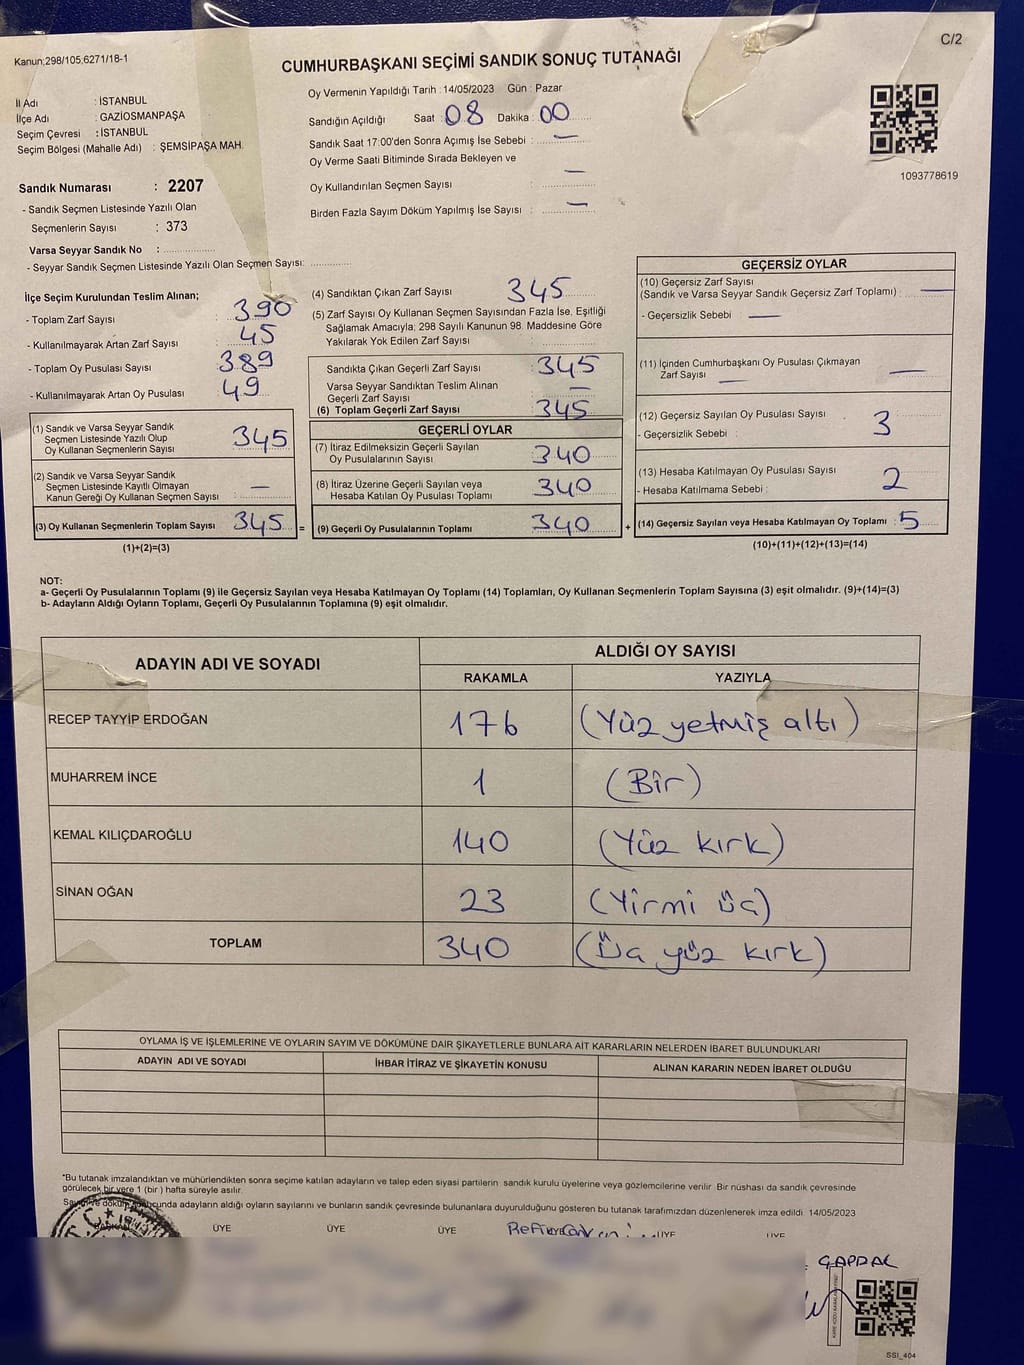 Kanun;298/105;6271/18-1
C/2
CUMHURBAŞKANI SEÇİMİ SANDIK SONUÇ TUTANAĞI
İl Adı : İSTANBUL
İlçe Adı : GAZİOSMANPAŞA
Seçim Çevresi : İSTANBUL
Seçim Bölgesi (Mahalle Adı) : ŞEMSİPAŞA MAH.
Sandık Numarası : 2207
- Sandık Seçmen Listesinde Yazılı Olan
Seçmenlerin Sayısı : 373
Varsa Seyyar Sandık No :
- Seyyar Sandık Seçmen Listesinde Yazılı Olan Seçmen Sayısı:
Oy Vermenin Yapıldığı Tarih : 14/05/2023 Gün : Pazar
Sandığın Açıldığı Saat : 08 Dakika : 00
Sandık Saat 17:00'den Sonra Açımış İse Sebebi : —
Oy Verme Saati Bitiminde Sırada Bekleyen ve
Oy Kullandırılan Seçmen Sayısı : —
Birden Fazla Sayım Döküm Yapılmış İse Sayısı : —
1093778619
İlçe Seçim Kurulundan Teslim Alınan;
- Toplam Zarf Sayısı : 390
- Kullanılmayarak Artan Zarf Sayısı : 45
- Toplam Oy Pusulası Sayısı : 389
- Kullanılmayarak Artan Oy Pusulası : 49
(1) Sandık ve Varsa Seyyar Sandık
Seçmen Listesinde Yazılı Olup
Oy Kullanan Seçmenlerin Sayısı : 345
(2) Sandık ve Varsa Seyyar Sandık
Seçmen Listesinde Kayıtlı Olmayan
Kanun Gereği Oy Kullanan Seçmen Sayısı : —
(3) Oy Kullanan Seçmenlerin Toplam Sayısı : 345 =
(1)+(2)=(3)
(4) Sandıktan Çıkan Zarf Sayısı : 345
(5) Zarf Sayısı Oy Kullanan Seçmen Sayısından Fazla İse, Eşitliği
Sağlamak Amacıyla; 298 Sayılı Kanunun 98. Maddesine Göre
Yakılarak Yok Edilen Zarf Sayısı :
Sandıkta Çıkan Geçerli Zarf Sayısı : 345
Varsa Seyyar Sandıktan Teslim Alınan
Geçerli Zarf Sayısı : —
(6) Toplam Geçerli Zarf Sayısı : 345
GEÇERLİ OYLAR
(7) İtiraz Edilmeksizin Geçerli Sayılan
Oy Pusulalarının Sayısı : 340
(8) İtiraz Üzerine Geçerli Sayılan veya
Hesaba Katılan Oy Pusulası Toplamı : 340
(9) Geçerli Oy Pusulalarının Toplamı : 340 +
GEÇERSİZ OYLAR
(10) Geçersiz Zarf Sayısı
(Sandık ve Varsa Seyyar Sandık Geçersiz Zarf Toplamı) : —
- Geçersizlik Sebebi : —
(11) İçinden Cumhurbaşkanı Oy Pusulası Çıkmayan
Zarf Sayısı : — —
(12) Geçersiz Sayılan Oy Pusulası Sayısı : 3
- Geçersizlik Sebebi :
(13) Hesaba Katılmayan Oy Pusulası Sayısı : 2
- Hesaba Katılmama Sebebi :
(14) Geçersiz Sayılan veya Hesaba Katılmayan Oy Toplamı : 5
(10)+(11)+(12)+(13)=(14)
NOT:
a- Geçerli Oy Pusulalarının Toplamı (9) ile Geçersiz Sayılan veya Hesaba Katılmayan Oy Toplamı (14) Toplamları, Oy Kullanan Seçmenlerin Toplam Sayısına (3) eşit olmalıdır. (9)+(14)=(3)
b- Adayların Aldığı Oyların Toplamı, Geçerli Oy Pusulalarının Toplamına (9) eşit olmalıdır.
ADAYIN ADI VE SOYADI ALDIĞI OY SAYISI
RAKAMLA YAZIYLA
RECEP TAYYİP ERDOĞAN 176 (Yüz yetmiş altı)
MUHARREM İNCE 1 (Bir)
KEMAL KILIÇDAROĞLU 140 (Yüz kırk)
SİNAN OĞAN 23 (Yirmi üç)
TOPLAM 340 (Üç yüz kırk)
OYLAMA İŞ VE İŞLEMLERİNE VE OYLARIN SAYIM VE DÖKÜMÜNE DAİR ŞİKAYETLERLE BUNLARA AİT KARARLARIN NELERDEN İBARET BULUNDUKLARI
ADAYIN ADI VE SOYADI İHBAR İTİRAZ VE ŞİKAYETİN KONUSU ALINAN KARARIN NEDEN İBARET OLDUĞU
*Bu tutanak imzalandıktan ve mühürlendikten sonra seçime katılan adayların ve talep eden siyasi partilerin sandık kurulu üyelerine veya gözlemcilerine verilir. Bir nüshası da sandık çevresinde
görülecek bir yere 1 (bir) hafta süreyle asılır.
adayların aldığı oyların sayılarını ve bunların sandık çevresinde bulunanlara duyurulduğunu gösteren bu tutanak tarafımızdan düzenlenerek imza edildi. 14/05/2023
BAŞKAN ÜYE ÜYE ÜYE ÜYE ÜYE
SSI_404